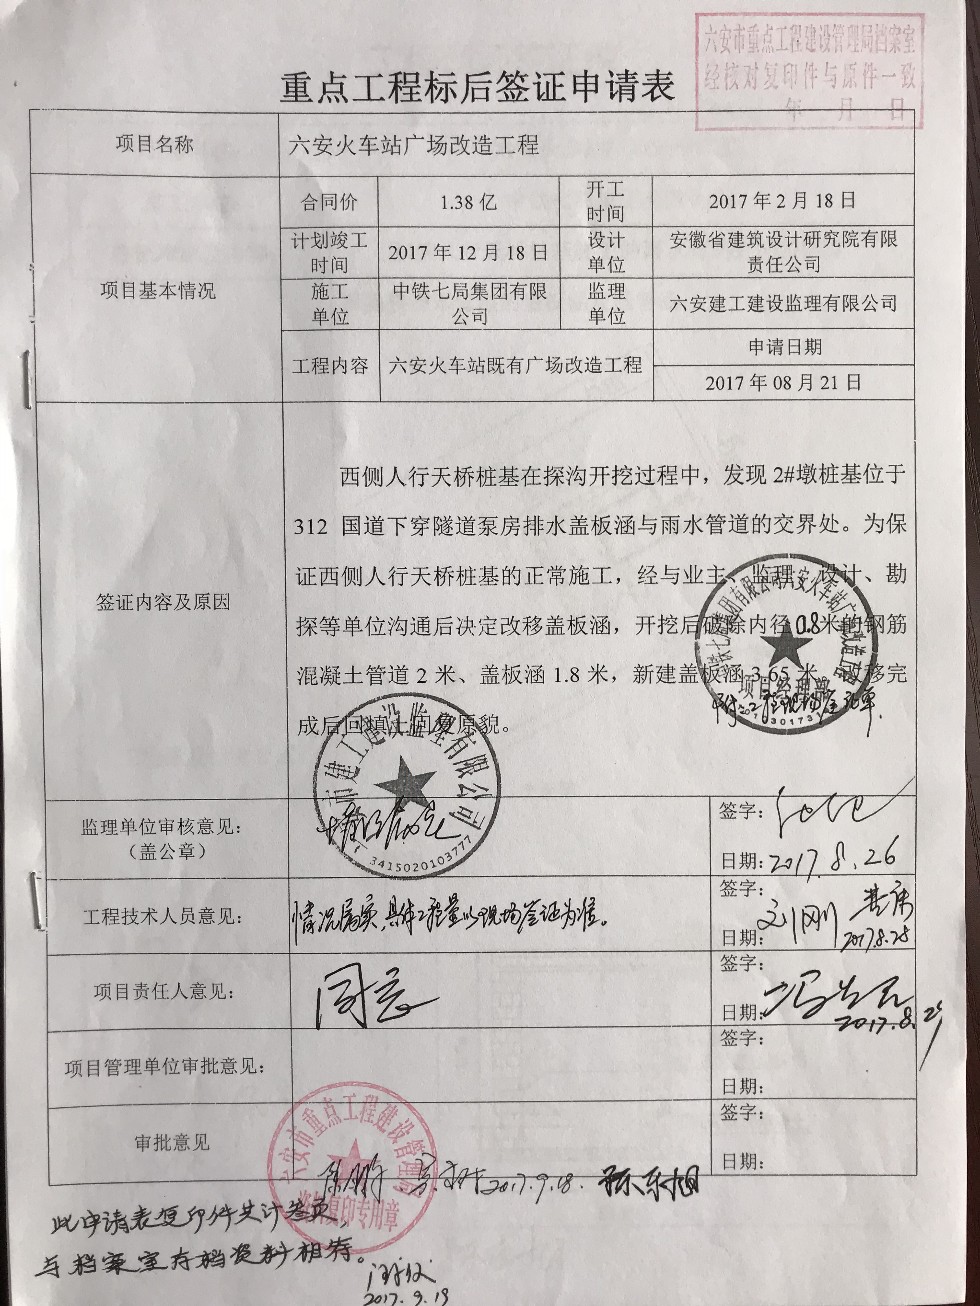 六安市重点工程建设管理局档案室
经核对复印件与原件一致
年 月 日
重点工程标后签证申请表
项目名称
六安火车站广场改造工程
项目基本情况
合同价
1.38 亿
开工
时间
2017 年 2 月 18 日
计划竣工
时间
2017 年 12 月 18 日
设计
单位
安徽省建筑设计研究院有限
责任公司
施工
单位
中铁七局集团有限
公司
监理
单位
六安建工建设监理有限公司
工程内容
六安火车站既有广场改造工程
申请日期
2017 年 08 月 21 日
签证内容及原因
西侧人行天桥桩基在探沟开挖过程中，发现 2#墩桩基位于
312 国道下穿隧道泵房排水盖板涵与雨水管道的交界处。为保
证西侧人行天桥桩基的正常施工，经与业主、监理、设计、勘
探等单位沟通后决定改移盖板涵，开挖后破除内径 0.8 米的钢筋
混凝土管道 2 米、盖板涵 1.8 米，新建盖板涵 3.65 米，改移完
成后回填土回复原貌。
项目经理部
监理单位审核意见：
（盖公章）
3415020103777
签字：
日期：2017.8.26
工程技术人员意见：
情况属实，具体工程量以现场签证为准。
签字：
刘刚
日期：
2017.8.25
项目责任人意见：
同意
签字：
日期：
2017.8.25
项目管理单位审批意见：
签字：
日期：
审批意见
签字：
日期：
六安市重点工程建设管理局
档案复印专用章
2017.9.18. 孙东旭
此申请表复印件共计叁页，
与档案室存档资料相符。
2017.9.19